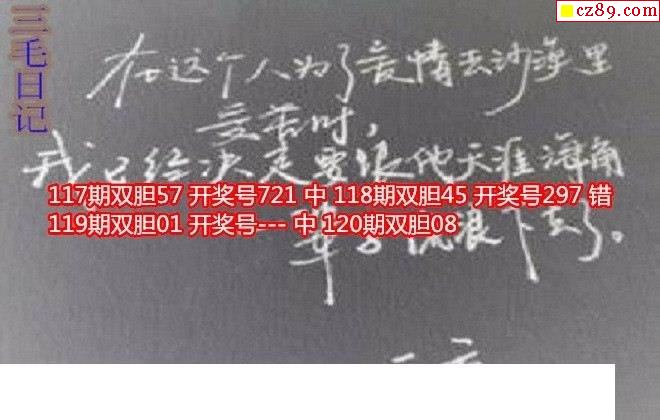 cz89.com
三毛日记
在这个人为了爱情去沙漠里
受苦时,
我已经决定要跟他天涯海角
117期双胆57 开奖号721 中 118期双胆45 开奖号297 错
119期双胆01 开奖号--- 中 120期双胆08
辈子流浪下去了。